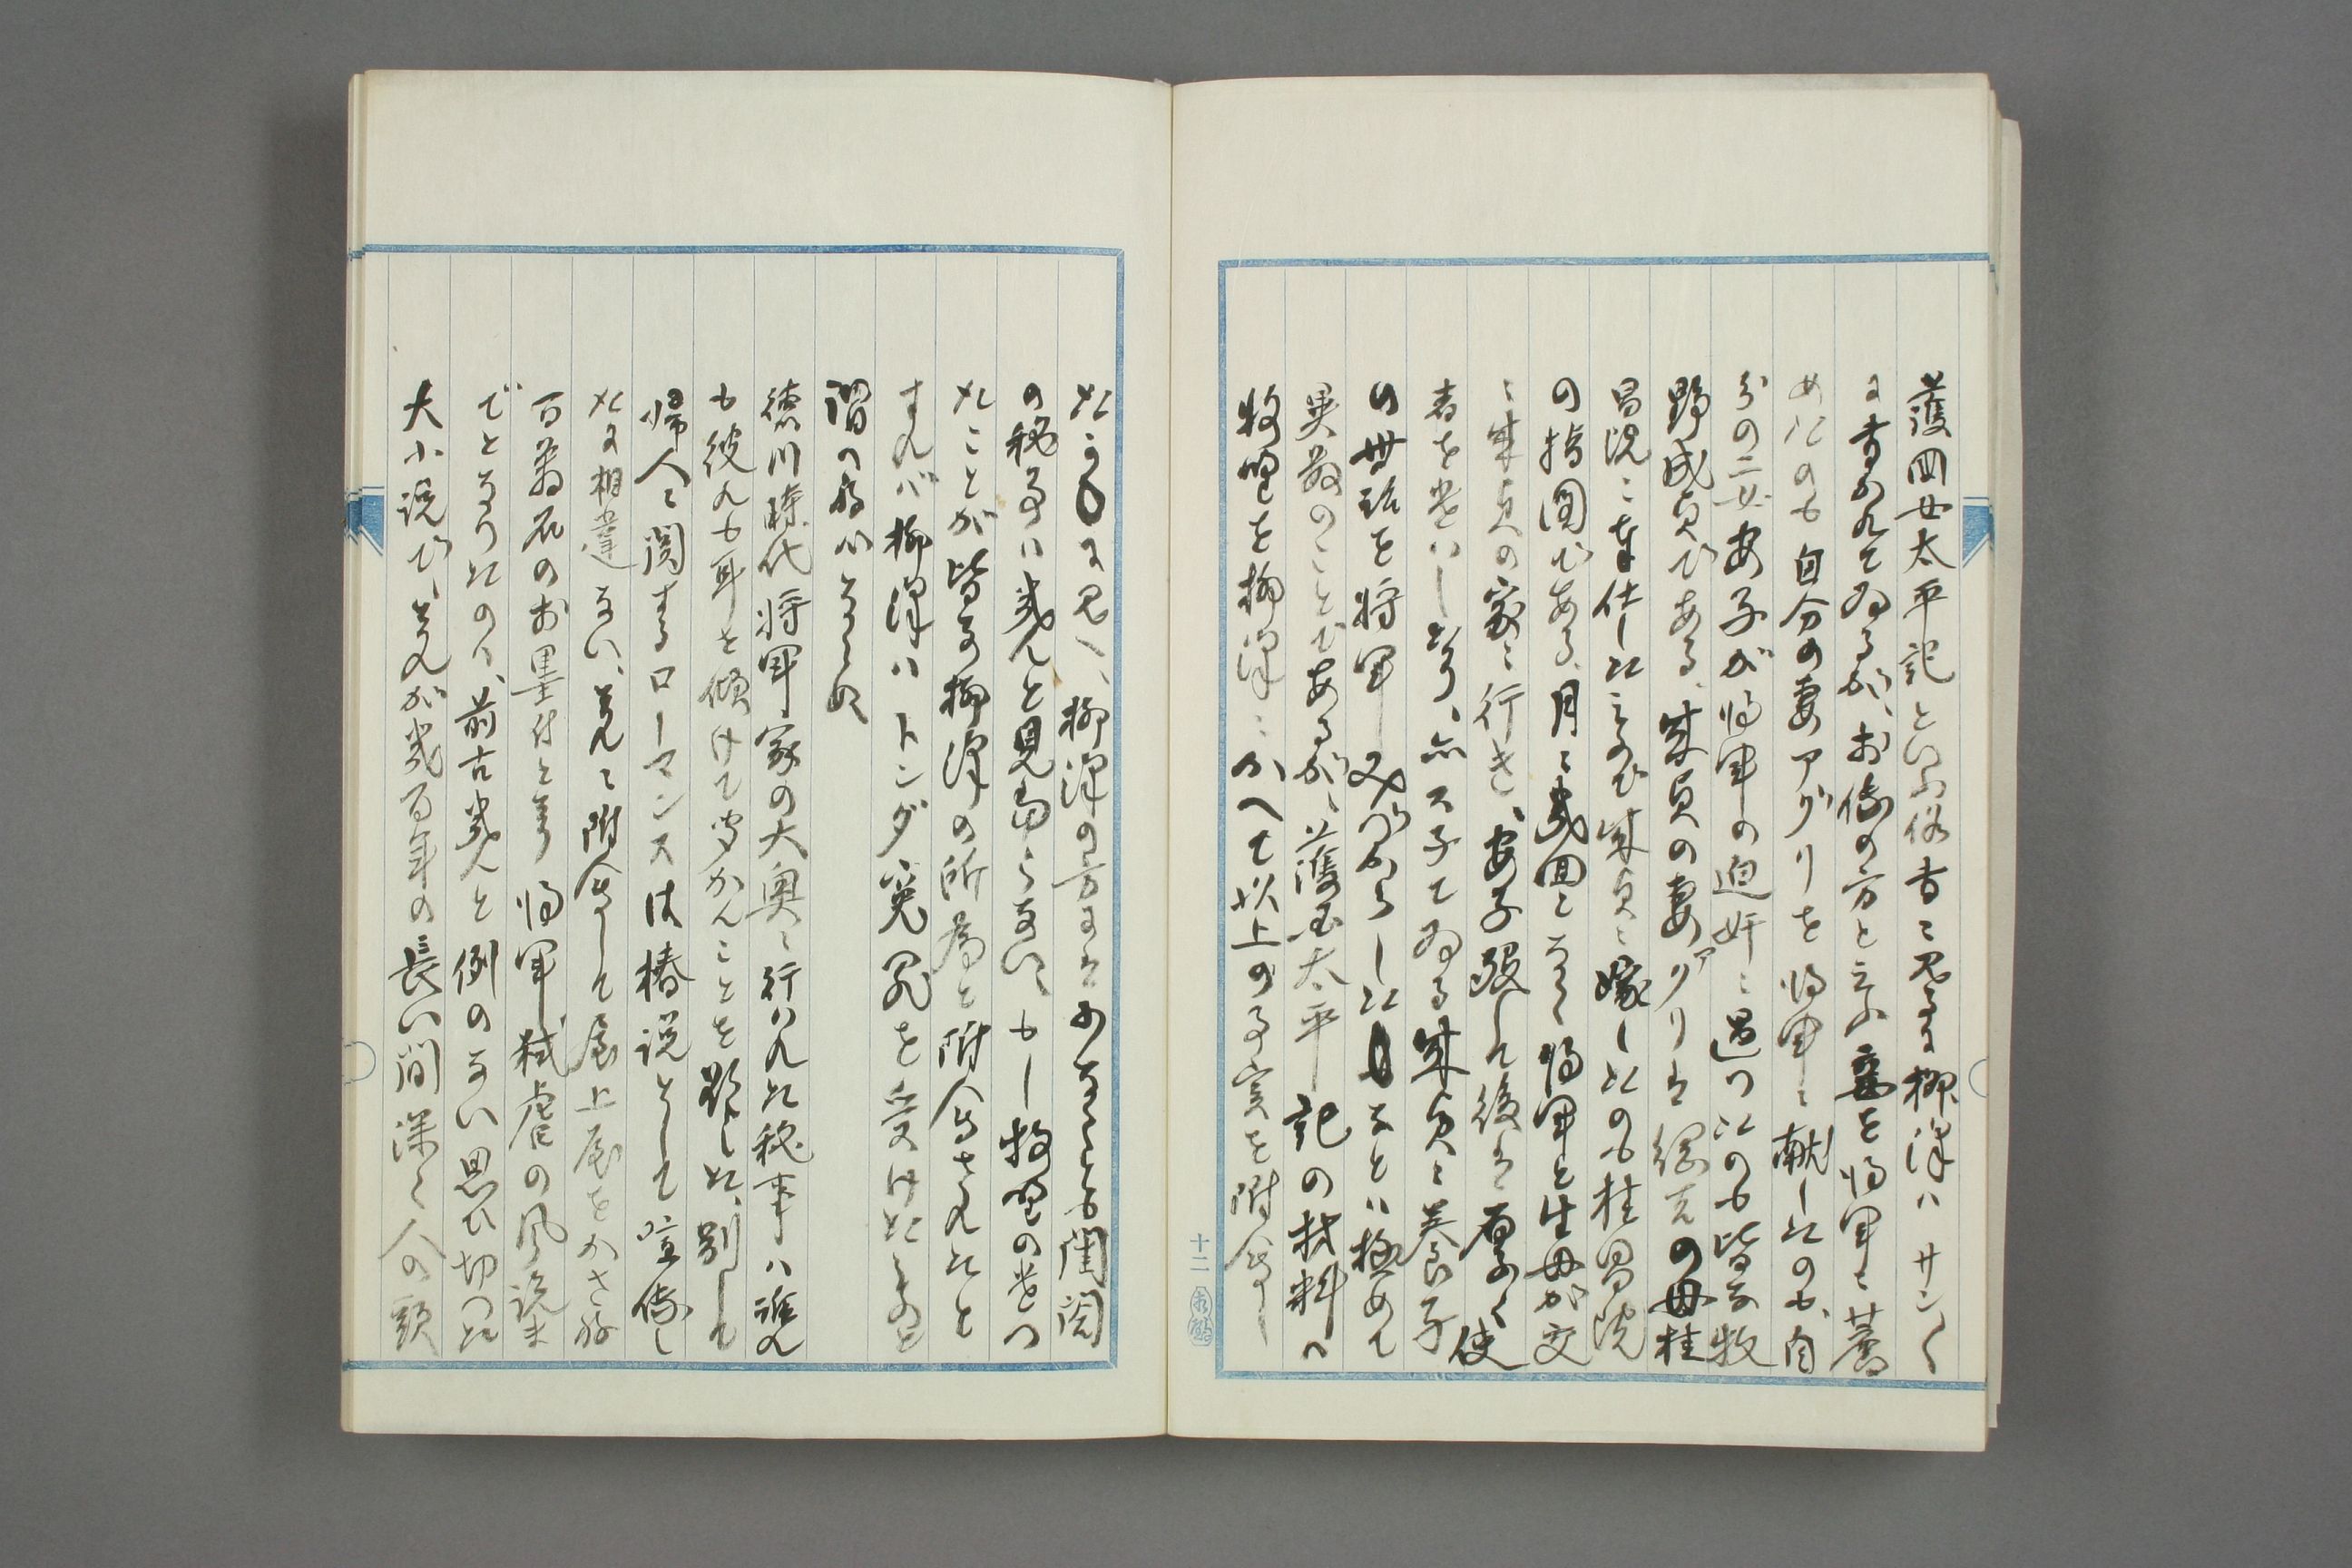 護国女太平記といふ俗書に見るに柳澤ハサン〱
に書かれてゐるが、お傳の方と云ふ妾を将軍に薦
めたのも自分の妻アグリを将軍に献したのも、自
分の二女安子が将軍の迫奸に遇つたのも皆な牧
野成貞である、成貞の妻アグリは綱吉の母桂
昌院に奉仕した女で成貞に嫁したのも桂昌院
の指図である、月に幾回となく将軍と生母が交
に成貞の家に行き、安子歿して後は厚く使
者を遣ハしなり、子てゐる成貞に養子
の世話を将軍みづからしたなどハ極めて
異数のことであるが、護国太平記の材料ハ
牧野を柳澤にかへて以上の事実を附会し
たるに見へ、柳澤の方には少なくとも閨閥
の秘事ハ幾んと見当らない、もし牧野の遣つ
たことが皆な柳澤の所為と附会されたと
すれバ柳澤ハトンダ冤罪を受けたものと
謂の外ハなくぬ
徳川時代将軍家の大奥に行ハれた秘事ハ誰れ
も彼れも耳を傾けて聞かんことを欲した、別して
婦人に関するローマンスは椿説として喧傳し
たに相違ない、それに附会して屋上屋をかさね
百萬石のお墨付となり将軍弑虐の風説ま
でとなりたのハ、前古幾んと例のない思ひ切つた
大小説で、それが幾百年の長い間深く人の頭
十二